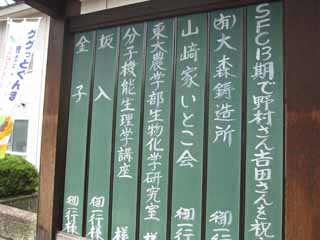 SFC13期で野村さん吉田さんを祝
㈲大森鋳造所 御一行
山崎家いとこ会 御一行様
東大農学部生物化学研究室 様
分子機能生理学講座 様
坂入 御一行様
金子 御一行様
ググっとぐんま